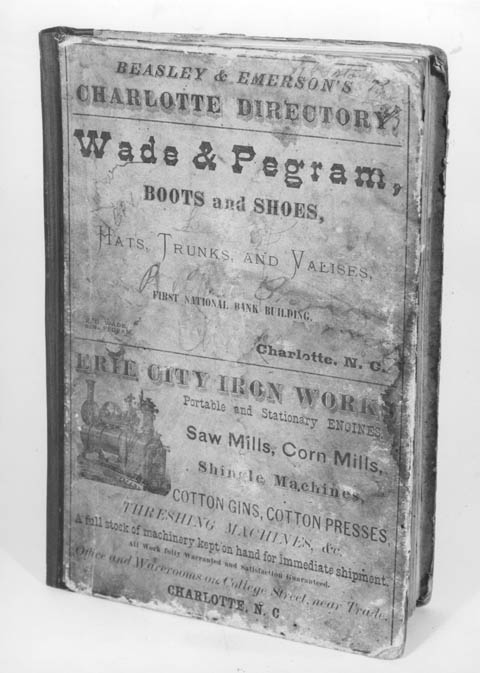 BEASLEY & EMERSON'S
CHARLOTTE DIRECTORY
Wade & Pegram,
BOOTS and SHOES,
HATS, TRUNKS, AND VALISES,
FIRST NATIONAL BANK BUILDING,
WADE,
Charlotte, N. C.
ERIE CITY IRON WORKS
Portable and Stationary ENGINES,
Saw Mills, Corn Mills,
Shingle Machines,
COTTON GINS, COTTON PRESSES,
THRESHING MACHINES, &c.
A full stock of machinery kept on hand for immediate shipment.
All Work fully Warranted and Satisfaction Guaranteed.
Office and Warerooms on College Street, near Trade,
CHARLOTTE, N. C